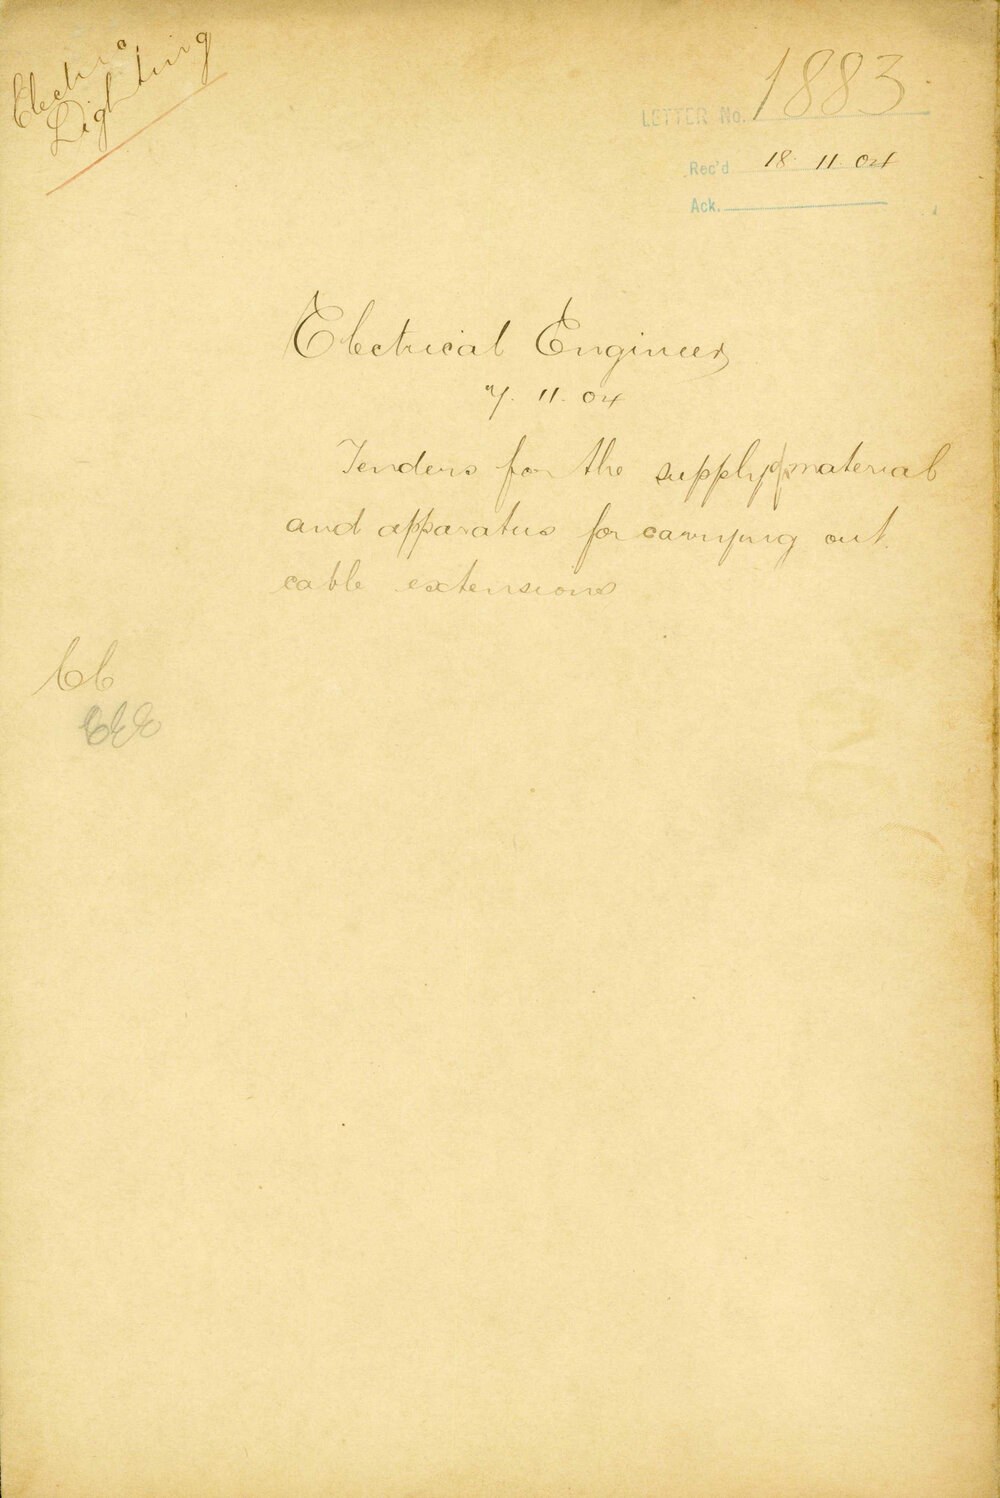 Electric
Lighting
LETTER No. 1883
Rec'd 18. 11. 04
Ack.
Electrical Engineer
7. 11. 04
Tenders for the supply of material
and apparatus for carrying out
cable extensions